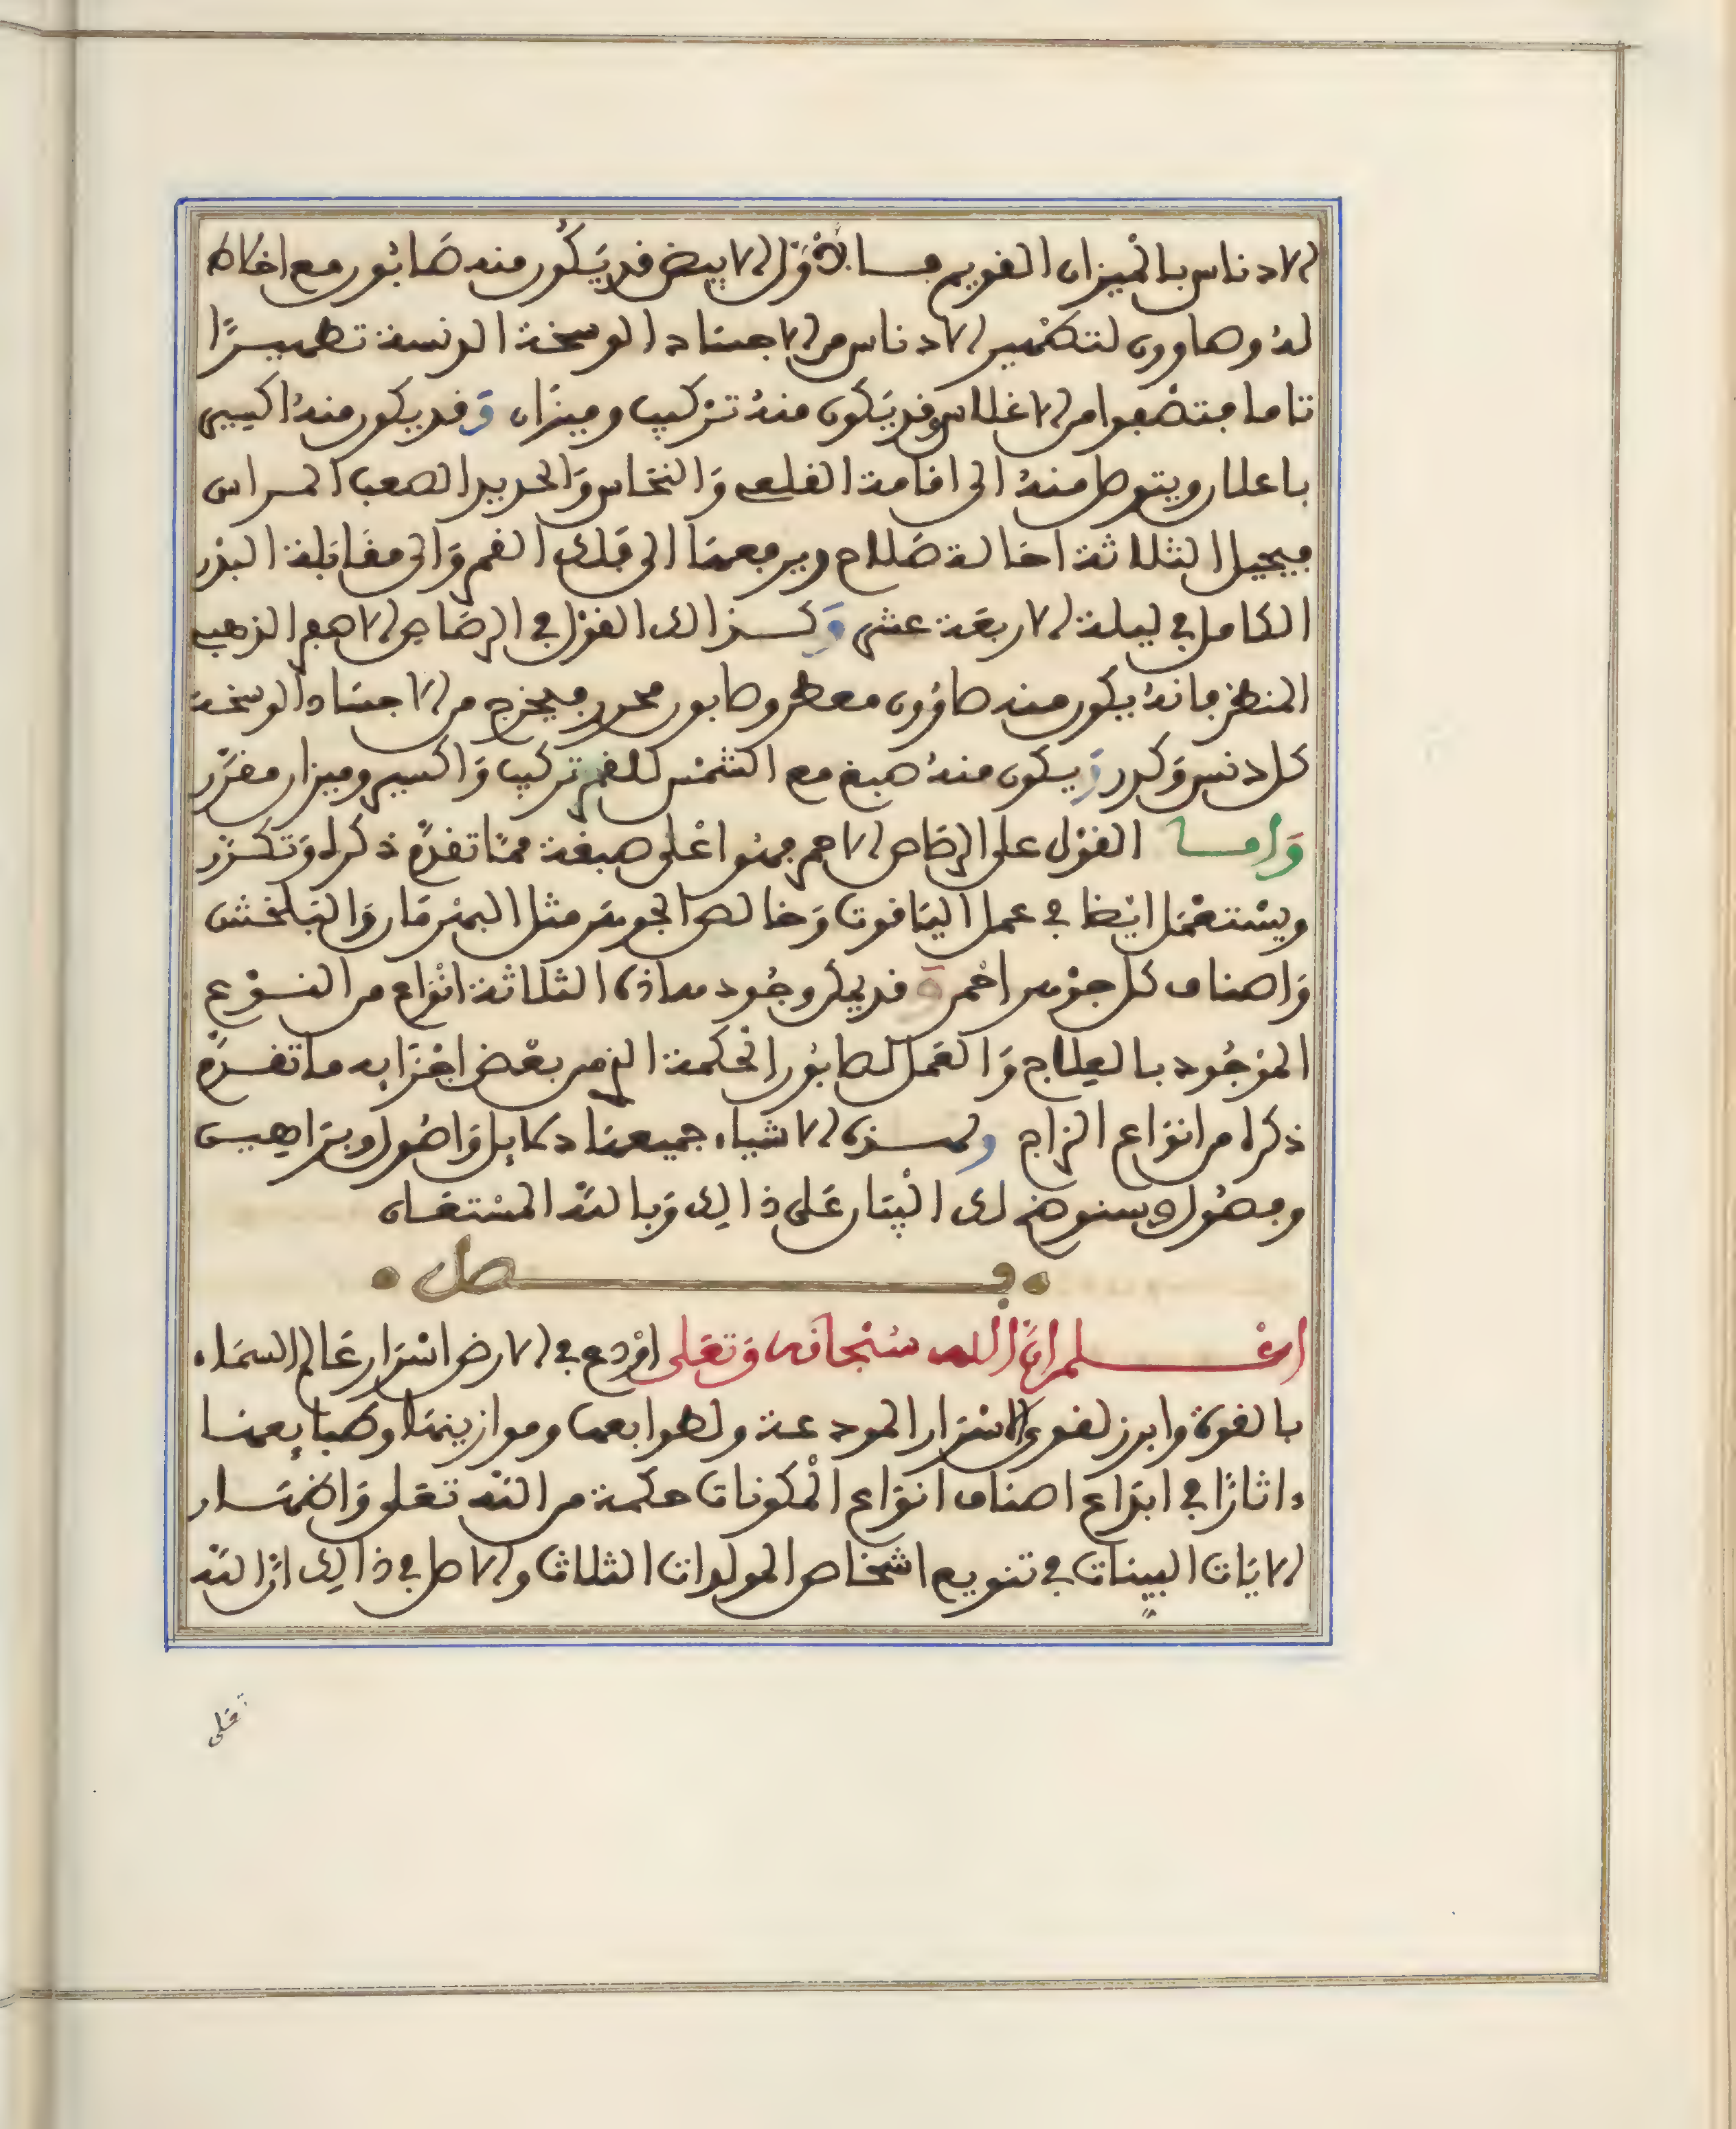 الادناس بالميزان القويم فسا الاول الابيض قد يكون منه صابون مع اضافة
له وصاوون لتطهير الادناس من الاجساد الوسخة الدنسة تطهيرا
تاما فتصفوا من الاغلاس وقد يكون منه تركيب وميزان وقد يكون منه اكسير
باعلان ويتوصل منه الى اقامة القلعي والنحاس والحديد الصعب المراس
فيحيل الثلاثة احالة صلاح ويرفعها الى فلك القمر والى مقابلة البدر
الكامل في ليلة الاربعة عشر وكذالك القول في الرصاص الاصفر الذهب
المنطرز فانه يكون منه صاوون مطهر وصابون محرر فيخرج من الاجساد الوسخة
كل دنس وكدر ويكون منه صبغ مع الشمس للقمر تركيب واكسير وميزان مقرر
واما القول على الرصاص الاحمر فهو اعلى صبغة مما تقدم ذكره وتكرر
ويستعمل ايضا في عمل الياقوت وخالص الجوهر مثل البهرمان والبلخش
واصناف كل جوهر احمر وقد يمكن وجود هاذه الثلاثة انواع من النوع
الموجود بالعلاج والعمل للصابون الحكمة الذي من بعض اجزايه ما تقدم
ذكره من انواع الزاج ولهذه الاشياء جميعها دلايل واصول وبراهين
وفصول وسنوضح لك البيان على ذالك وبالله المستعان
فصل
اعلم ان الله سبحانه وتعلى اودع في الارض اسرار عالم السماء
بالقوة وابرز لقوى الاسرار المودعة ولطوابعها وموازينها وطبايعها
ءاثارا في ابداع اصناف انواع المكونات حكمة من الله تعلى واظهار
الايات البينات في تنويع اشخاص المولدات الثلاث والاصل في ذالك ان الله
تعلى